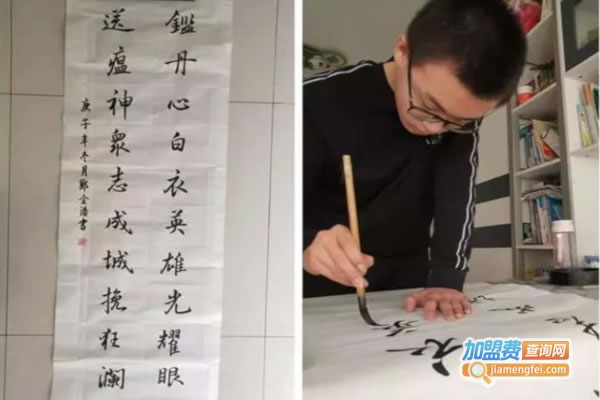 鑑丹心白衣英雄光耀眼
送瘟神衆志成城挽狂瀾
庚子年冬月鄭金浩書
加盟费查询网
jiamengfei.com